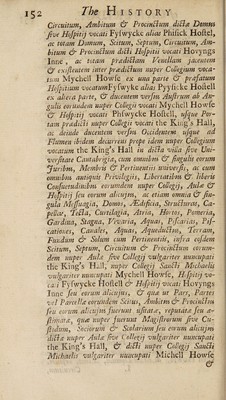 152 The HISTORY
Circuitum, Ambitum & Procinctum dictæ Domus
sive Hospitij vocati Fyswycke aliàs Phisick Hostel,
ac totam Domum, Scitum, Septum, Circuitum, Am-
bitum & Procinctum dicti Hospitij vocati Hovyngs
Inne, ac totam prædictam Venellam jacentem
& existentem inter prædictum nuper Collegium voca-
tum Mychell Howse ex una parte & præfatum
Hospitium vocatum Fyswyke aliàs Pyysicke Hostell
ex altera parte, & ducentem versus Austrum ab An-
gulis eorundem nuper Collegij vocati Mychell Howse
& Hospitij vocati Physwicke Hostell, usque Por-
tam prædicti nuper Collegij vocati the King's Hall,
ac deinde ducentem versus Occidentem usque ad
Flumen ibidem decurrens prope idem nuper Collegium
vocatum the King's Hall in dicta villa sive Uni-
versitate Cantabrigia, cum omnibus & singulis eorum
Juribus, Membris & Pertinentiis universis, ac cum
omnibus antiquis Privilegiis, Libertatibus & liberis
Consuetudinibus eorundem nuper Collegij, Aulæ &
Hospitij seu eorum alicujus, ac etiam omnia & sin-
gula Messuagia, Domos, Ædificia, Structuras, Ca-
pellas, Tecta, Curtilagia, Atria, Hortos, Pomeria,
Gardina, Stagna, Vivaria, Aquas, Piscarias, Pis-
cationes, Canales, Aquas, Aquæductus, Terram,
Fundum & Solum cum Pertinentiis, infra eosdem
Scitum, Septum, Circuitum & Procinctum eorun-
dem nuper Aulæ sive Collegij vulgariter nuncupati
the King's Hall, nuper Collegij Sancti Michaelis
vulgariter nuncupati Mychell Howse, Hospitij vo-
cati Fyswicke Hostell & Hospitij vocati Hovyngs
Inne seu eorum alicujus, & quæ ut Pars, Partes
vel Parcella eorundem Scitus, Ambitus & Procinctus
seu eorum alicujus fuerunt usitata, reputata seu æ-
stimata, quæ nuper fuerunt Magistrorum sive Cu-
stodum, Sociorum & Scolarium seu eorum alicujus
dictæ nuper Aulæ sive Collegij vulgariter nuncupati
the King's Hall, & dicti nuper Collegij Sancti
Michaelis vulgariter nuncupati Michell Howse
&